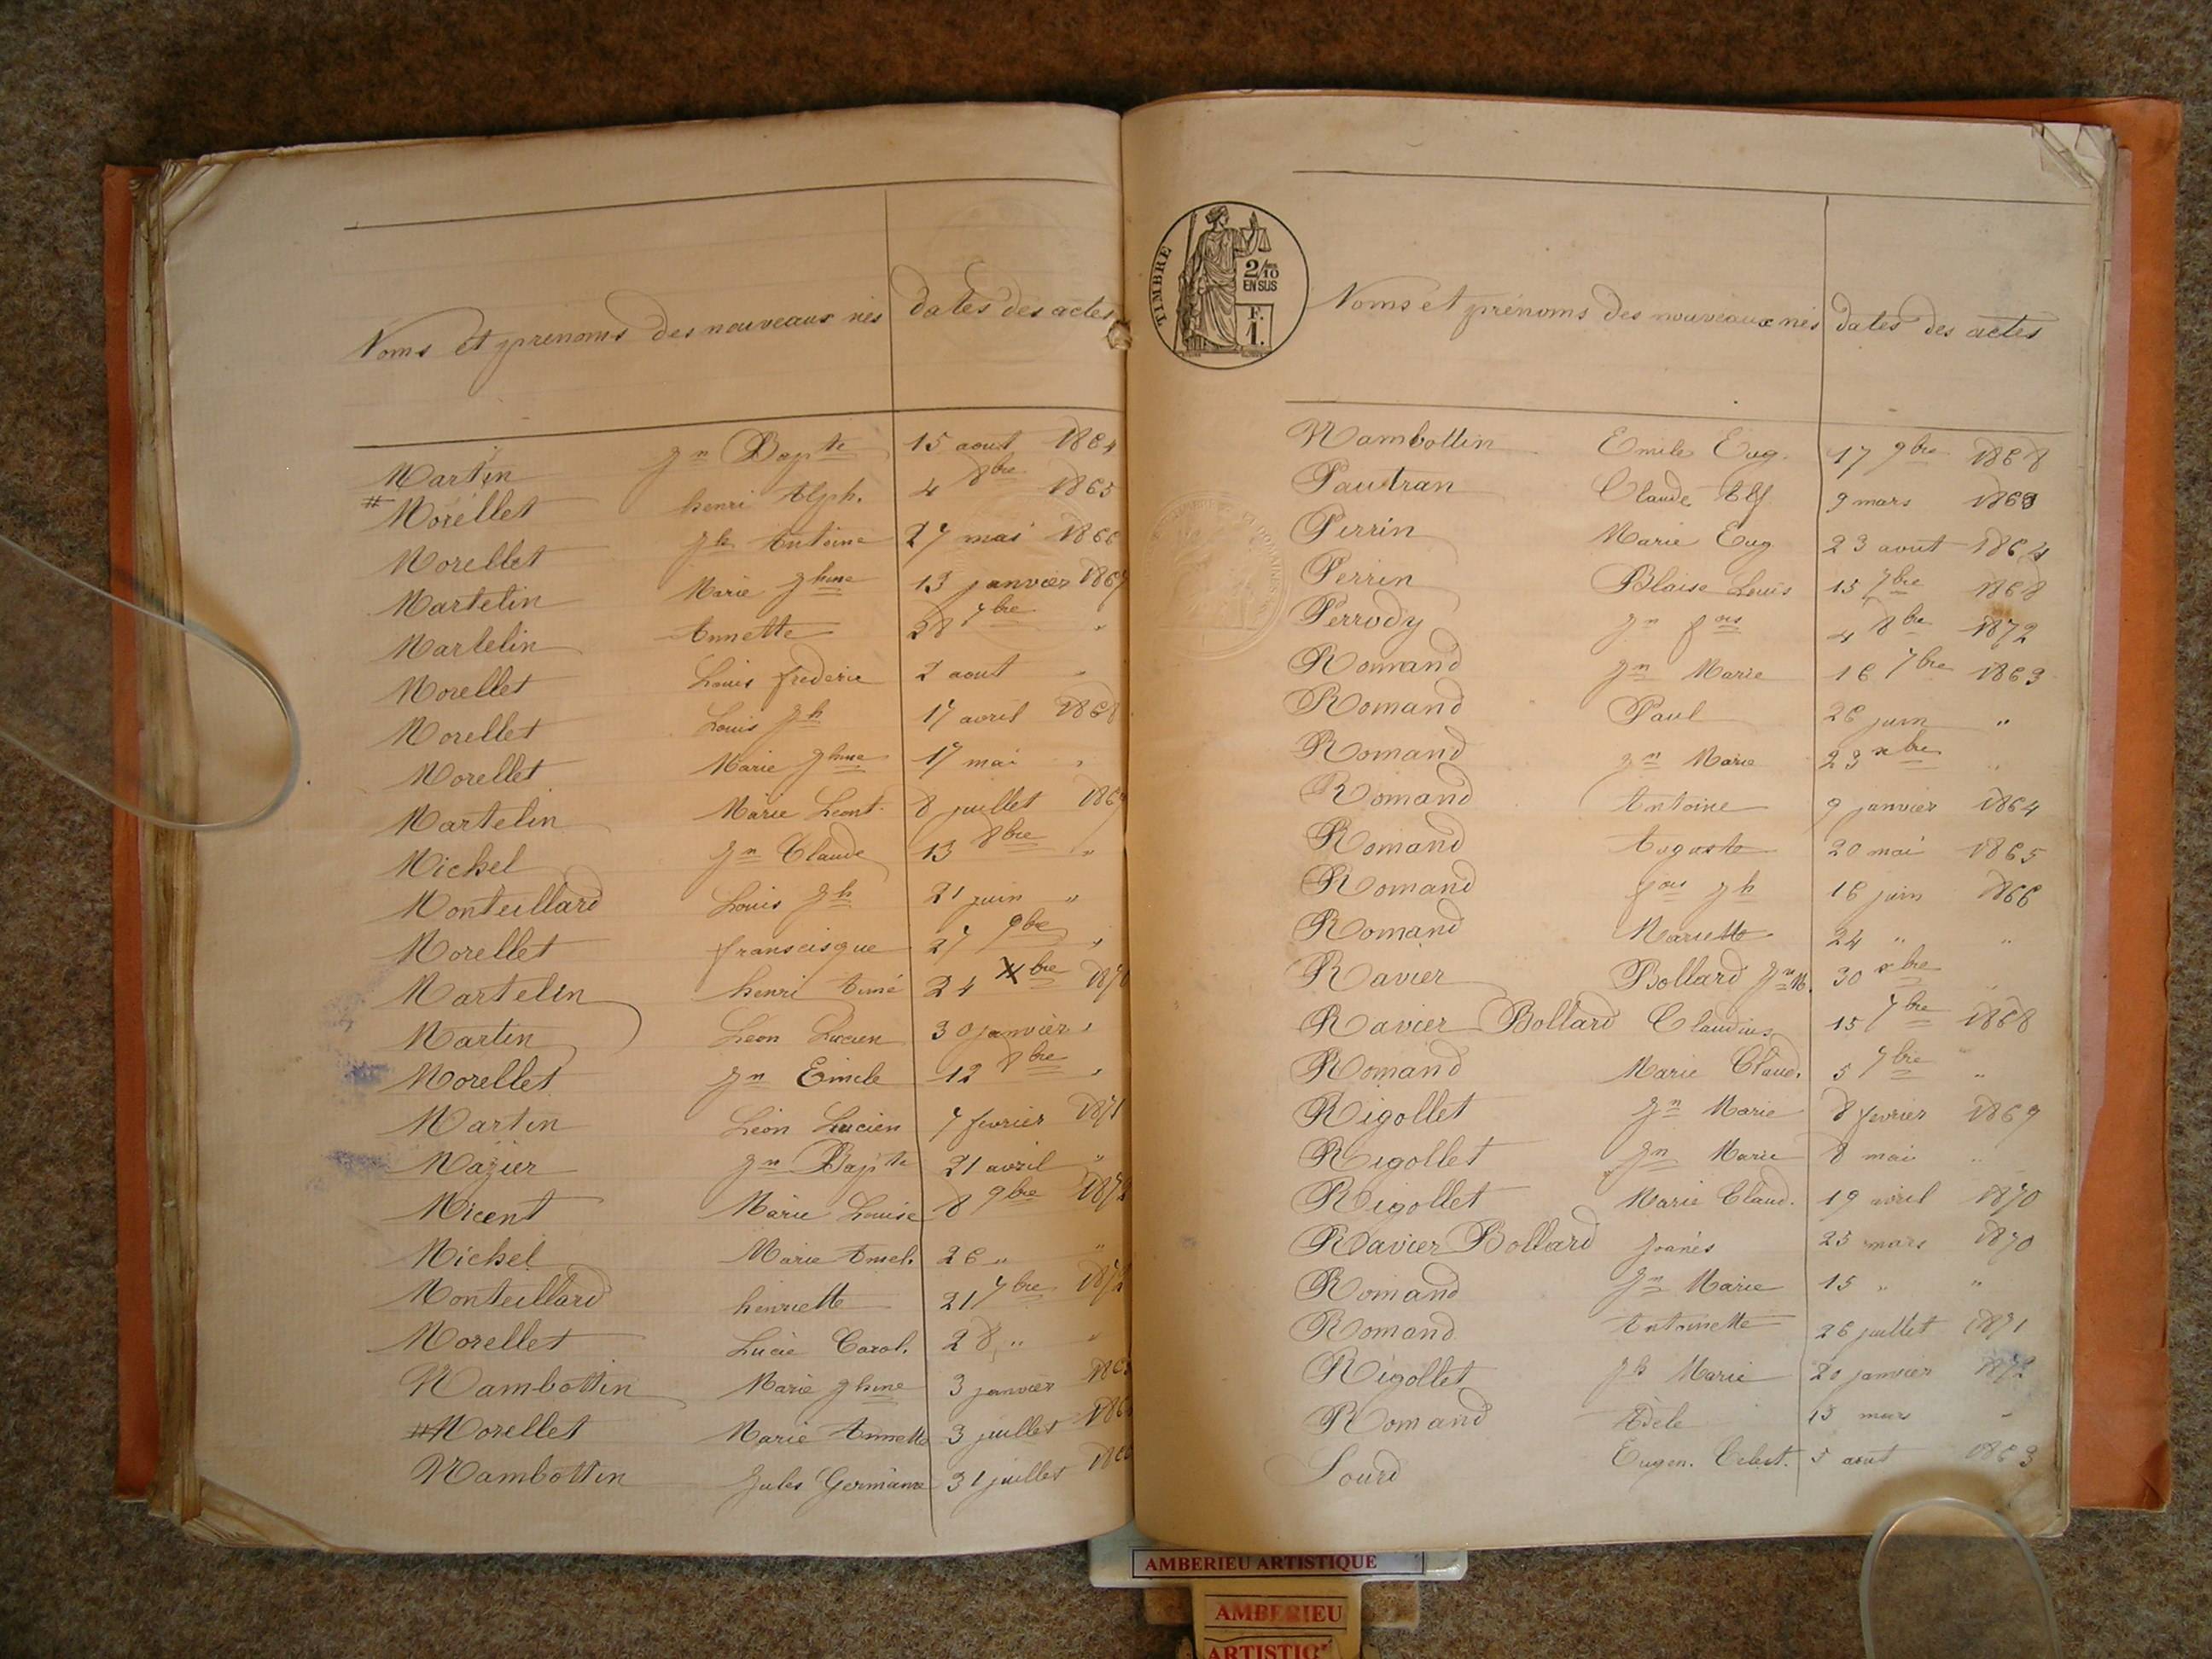 Noms et prenoms des nouveaux nés dates des actes
Martin Jn Bapte 15 aout 1864
# Morellet henri Alph. 4 8bre 1865
Morellet Jh Antoine 27 mai 1866
Martelin Marie Jhine 13 janvier 1867
Martelin Annette 28 7bre "
Morellet Louis frederic 2 aout "
Morellet Louis Jh 17 avril 1868
Morellet Marie Jhine 17 mai "
Martelin Marie Leont. 8 juillet 1869
Michel Jn Claude 13 8bre "
Monteillard Louis Jh 21 juin "
Morellet franscisque 27 9bre "
Martelin henri Aimé 24 Xbre 1870
Martin Leon Lucien 30 janvier "
Morellet Jn Emile 12 8bre "
Martin Léon Lucien 7 fevrier 1871
Mazier Jn Bapte 21 avril "
Micent Marie Louise 8 9bre
Michel Marie Amel. 26 " "
Monteillard henriette 21 7bre
Morellet Lucie Carol. 28 " "
Nambottin Marie Jhine 3 janvier
# Morellet Marie Annette 3 juillet
Nambottin Jules Germain 31 juillet
TIMBRE
2/10
EN SUS
F.
1.
Noms et prénoms des nouveaux nés dates des actes
Nambottin Emile Eug. 17 9bre 1868
Pautran Claude Alf 9 mars
Perrin Marie Eug 23 aout 1864
Perrin Blaise Louis 15 7bre 1868
Perrody Jn fois 4 8bre 1872
Romand Jn Marie 16 7bre 1863
Romand Paul 26 juin "
Romand Jn Marie 23 xbre "
Romand Antoine 9 janvier 1864
Romand Auguste 20 mai 1865
Romand fois Jh 16 juin 1866
Romand Mariette 24 " "
Ravier Bollard Jn M. 30 xbre "
Ravier Bollard Claudius 15 7bre 1868
Romand Marie Claud. 5 7bre "
Rigollet Jn Marie 8 fevrier 1869
Rigollet Jn Marie 8 mai "
Rigollet Marie Claud. 19 avril 1870
Ravier Bollard Joanés 25 mars 1870
Romand Jn Marie 15 " "
Romand Antoinette 26 juillet 1871
Rigollet Jh Marie 20 janvier 1872
Romand Adèle 13 mars "
Sourd Eugen. Celest. 5 aout 1863
AMBERIEU ARTISTIQUE
AMBERIEU
ARTISTIQ